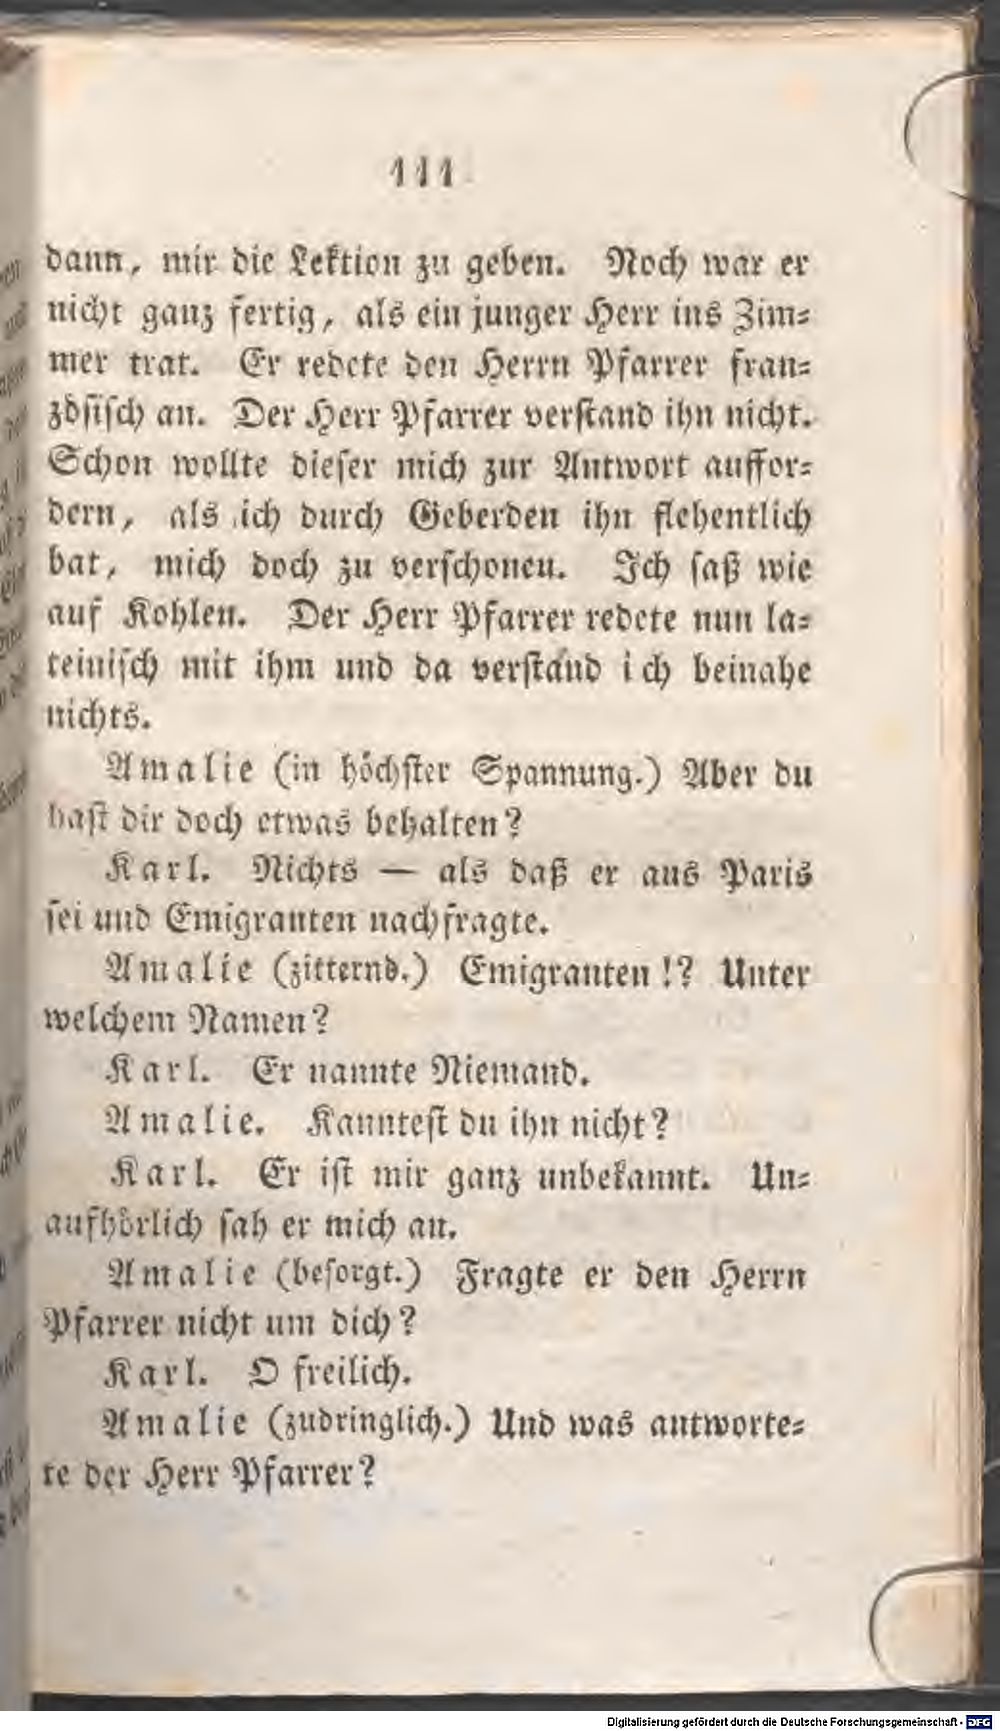 111
dann, mir die Lektion zu geben. Noch war er
nicht ganz fertig, als ein junger Herr ins Zim⸗
mer trat. Er redete den Herrn Pfarrer fran⸗
zöſiſch an. Der Herr Pfarrer verſtand ihn nicht.
Schon wollte dieſer mich zur Antwort auffor⸗
dern, als ich durch Geberden ihn flehentlich
bat, mich doch zu verſchonen. Ich ſaß wie
auf Kohlen. Der Herr Pfarrer redete nun la⸗
teiniſch mit ihm und da verſtand ich beinahe
nichts.
Amalie (in höchſter Spannung.) Aber du
haſt dir doch etwas behalten?
Karl. Nichts — als daß er aus Paris
ſei und Emigranten nachfragte.
Amalie (zitternd.) Emigranten!? Unter
welchem Namen?
Karl. Er nannte Niemand.
Amalie. Kannteſt du ihn nicht?
Karl. Er iſt mir ganz unbekannt. Un⸗
aufhörlich ſah er mich an.
Amalie (beſorgt.) Fragte er den Herrn
Pfarrer nicht um dich?
Karl. O freilich.
Amalie (zudringlich.) Und was antworte⸗
te der Herr Pfarrer?
Digitalisierung gefördert durch die Deutsche Forschungsgemeinschaft - DFG